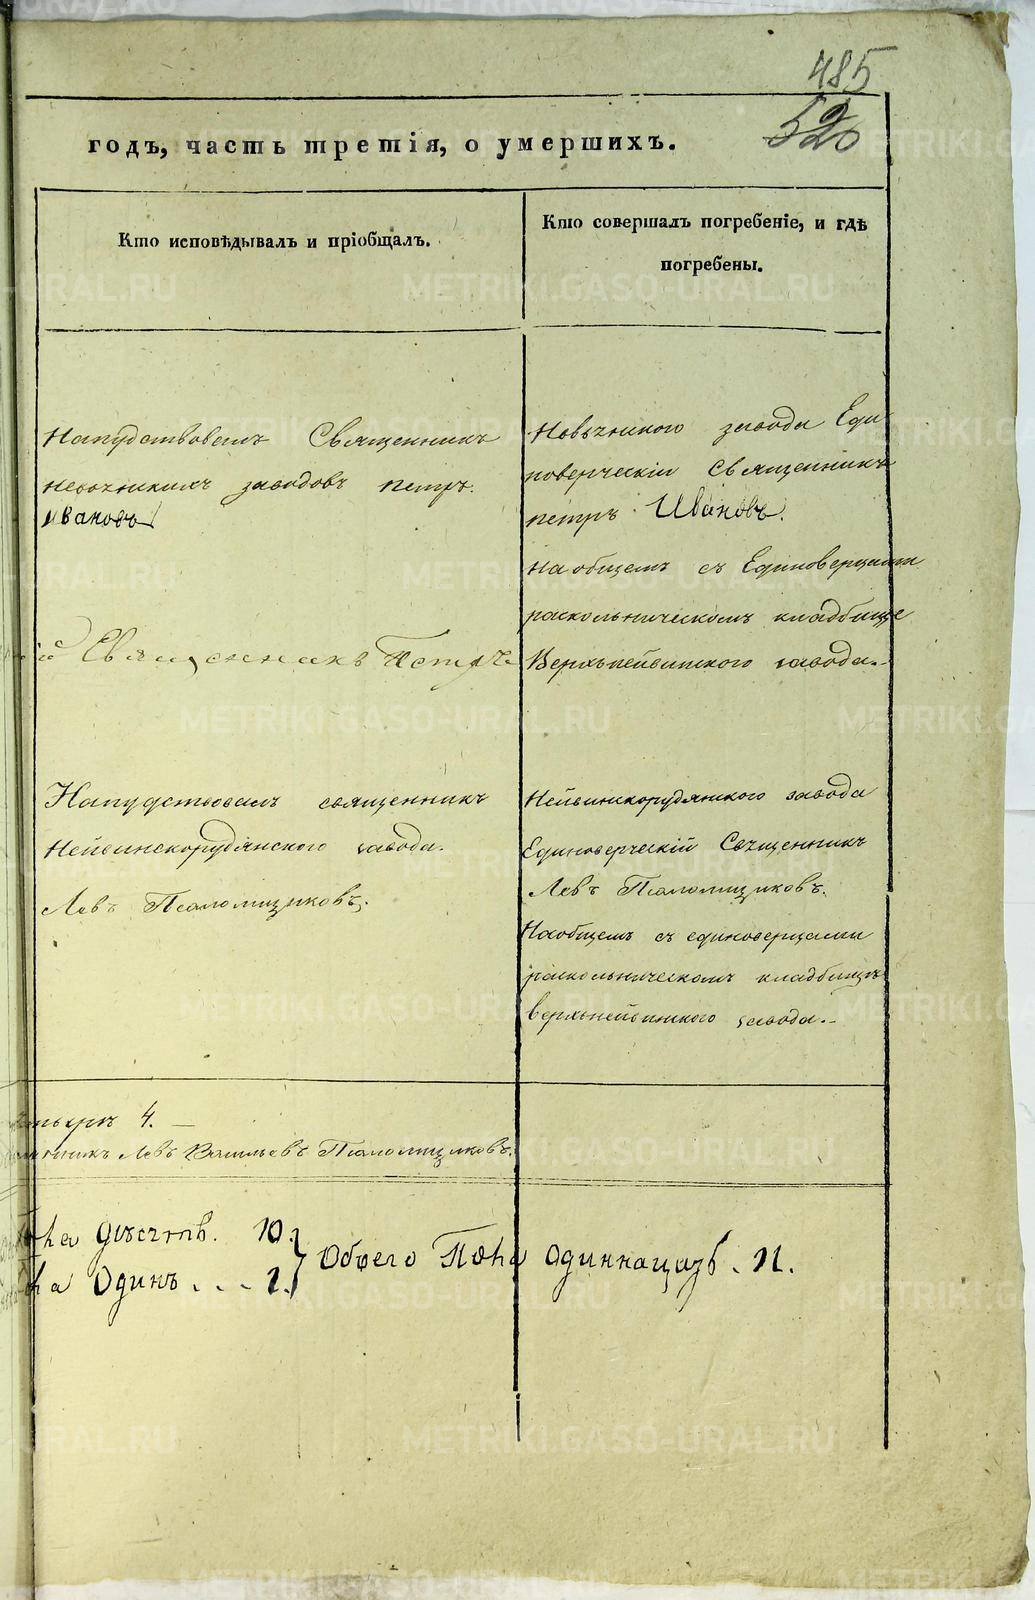 485
520
годъ, часть третія, о умершихъ.
Кто исповѣдывалъ и пріобщалъ.
Кто совершалъ погребеніе, и гдѣ
погребены.
Напудствовалъ Священникъ
заводовъ петръ
Ивановъ
завода Еди
новерческій Священникъ
петръ Ивановъ.
На общемъ съ Единоверцами
раскольническомъ кладбище
Верхънейвинского завода.
Священникъ Петръ
Напудствовалъ священникъ
Нейвинскорудянского завода.
Левъ Псаломщиковъ.
Нейвинскорудянского завода
Единоверческій Священникъ
Левъ Псаломщиковъ.
На общемъ съ единоверцами
раскольническомъ кладбищѣ
верхънейвинского завода.
4.
Левъ Васильевъ Псаломщиковъ.
10.
Одинъ . . . 1.
Обоего Пола одиннацать . 11.
METRIKI.GASO-URAL.RU